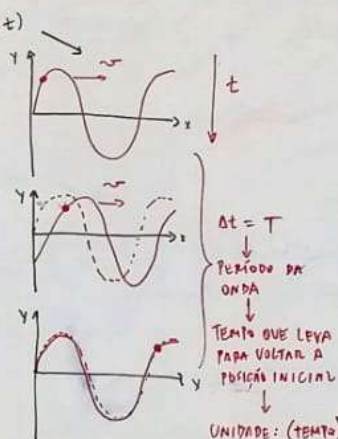 t)
Y
v
x
t
Y
v
x
Δt = T
PERÍODO DA
ONDA
TEMPO QUE LEVA
PARA VOLTAR A
POSIÇÃO INICIAL
Y
x
UNIDADE: (TEMPO)